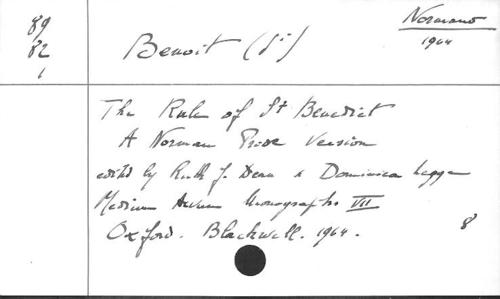 89
82
1
Benoit (St)
Normand
1964
The Rule of St Benedict
A Norman Prose Version
edited by Ruth J. Dean & Dominica Legge
Medium Aevum Monographs VII
Oxford. Blackwell. 1964.
8